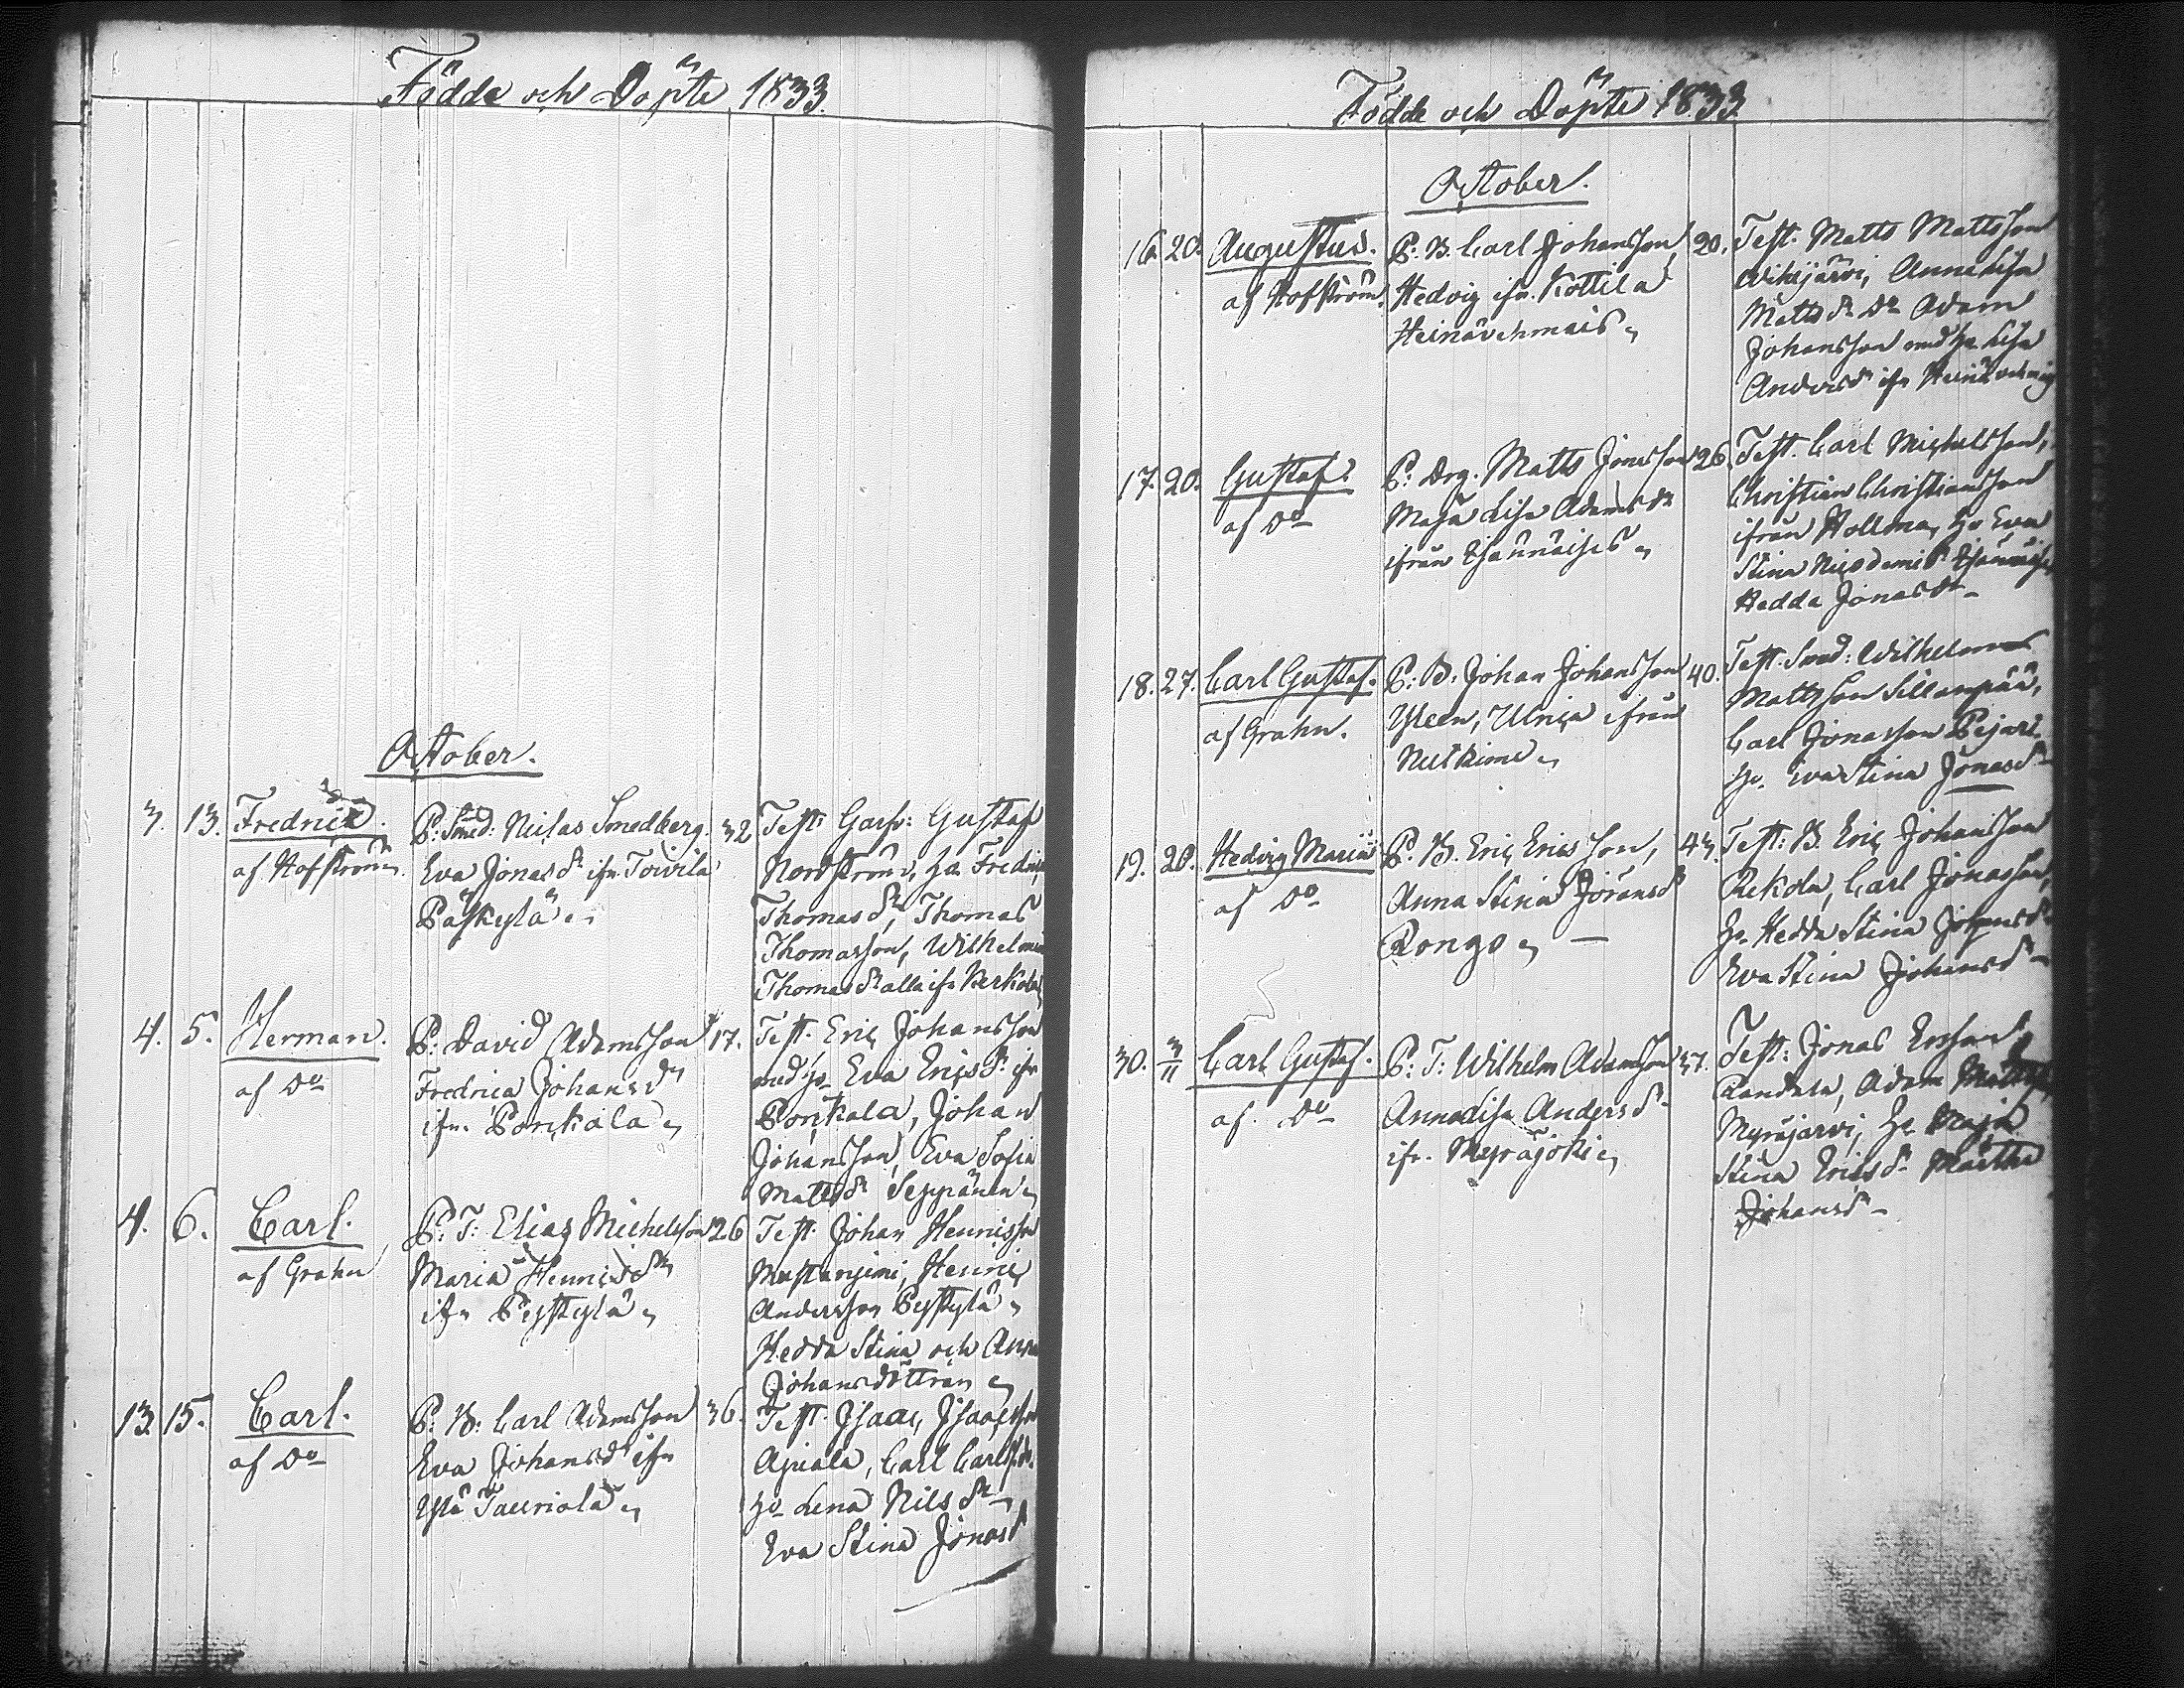 Födde och Döpte 1833.
October.
3. 13. Fredric.
af Hofström.
P: Smed: Niclas Smedberg.
Eva Jonasdr ifn Toivila
Päskylä
32
Test: Garfv: Gustaf
Nordström, h. Fredrica
Thomasdr, Thomas
Thomasson, Wilhelmina
Thomasdr alla ifn Kerkola
4. 5. Herman.
af Do
P: David Adamsson
Fredrica Johansdr
ifn. Porckala
17.
Test. Eric Johansson
med h. Eva Ericsdr ifn
Porckala, Johan
Johansson, Eva Sofia
Mattsdr Seppänen
4. 6. Carl.
af Grahn
P: T: Elias Michelsson
Maria Henricsdr
ifn Pystylä
26
Test. Johan Henricsson
Mustaniemi, Henric
Andersson Pystylä
Hedda Stina och Anna
Johansdöttran
13. 15. Carl.
af Do
P: B: Carl Adamsson
Eva Johansdr ifn
Ylä Tauriola
36.
Test. Isaac Isaacsson
Ajuala, Carl Carlsson
h. Lena Nilsdr
Eva Stina Jonasdr
Födde och Döpte 1833
October.
16. 20. Augustus.
af Hofström.
P. B. Carl Johansson,
Hedvig ifn. Kottila
Heinävehmais
20.
Test. Matts Mattsson
Wihijärvi, Anna Lisa
Mattsdr Do Adam
Johansson med h. Lisa
Andersdr ifn Heinävehmais
17. 20. Gustaf.
af Do
P: Drg. Matts Jonasson
Maja Lisa Adamsdr
ifrån
26.
Test. Carl Michelsson,
Christian Christiansson
ifrån Hollma, h. Eva
Stina
Hedda Jonasdr
18. 27. Carl Gustaf.
af Grahn.
P: B. Johan Johansson
Yleen, Ulrica ifrån
Nutkime
40.
Test. Smed: Wilhelm
Mattsson Sillanpää,
Carl Jonasson Pejari
h. Eva Stina Jonasdr
19. 20. Hedvig Maria
af Do
P. B. Eric Ericsson,
Anna Stina Göransdr
Rongo
43.
Test: B. Eric Johansson
Rekola, Carl Jonasson,
h. Hedda Stina Johansdr
Eva Stina Johansdr
30. 3/11 Carl Gustaf.
af. Do
P: T: Wilhelm Adamsson
Anna Lisa Andersdr
ifr. Myräjoki
37.
Test: Jonas Ersson
Randala, Adam Mattsson
Myräjärvi, h. Maja
Stina Ericsdr Märtha
Johansdr